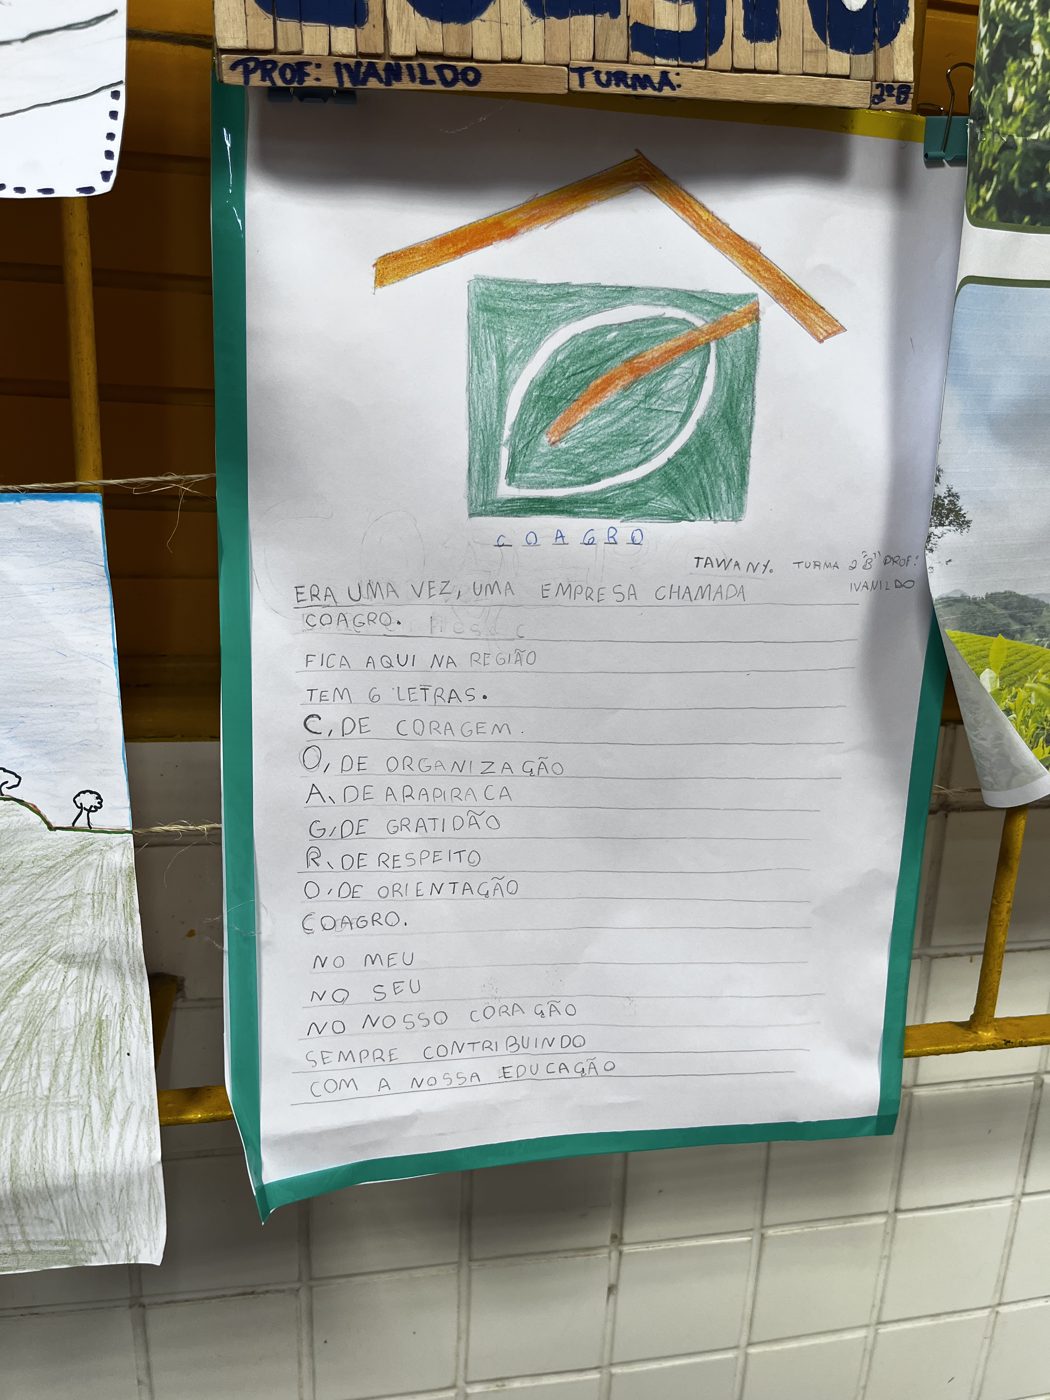 PROF: IVANILDO TURMA: 2º B
COAGRO
TAWANY. TURMA 2"B" PROF:
IVANILDO
ERA UMA VEZ, UMA EMPRESA CHAMADA
COAGRO.
FICA AQUI NA REGIÃO
TEM 6 LETRAS.
C, DE CORAGEM.
O, DE ORGANIZAÇÃO
A, DE ARAPIRACA
G, DE GRATIDÃO
R, DE RESPEITO
O, DE ORIENTAÇÃO
COAGRO.
NO MEU
NO SEU
NO NOSSO CORAÇÃO
SEMPRE CONTRIBUINDO
COM A NOSSA EDUCAÇÃO